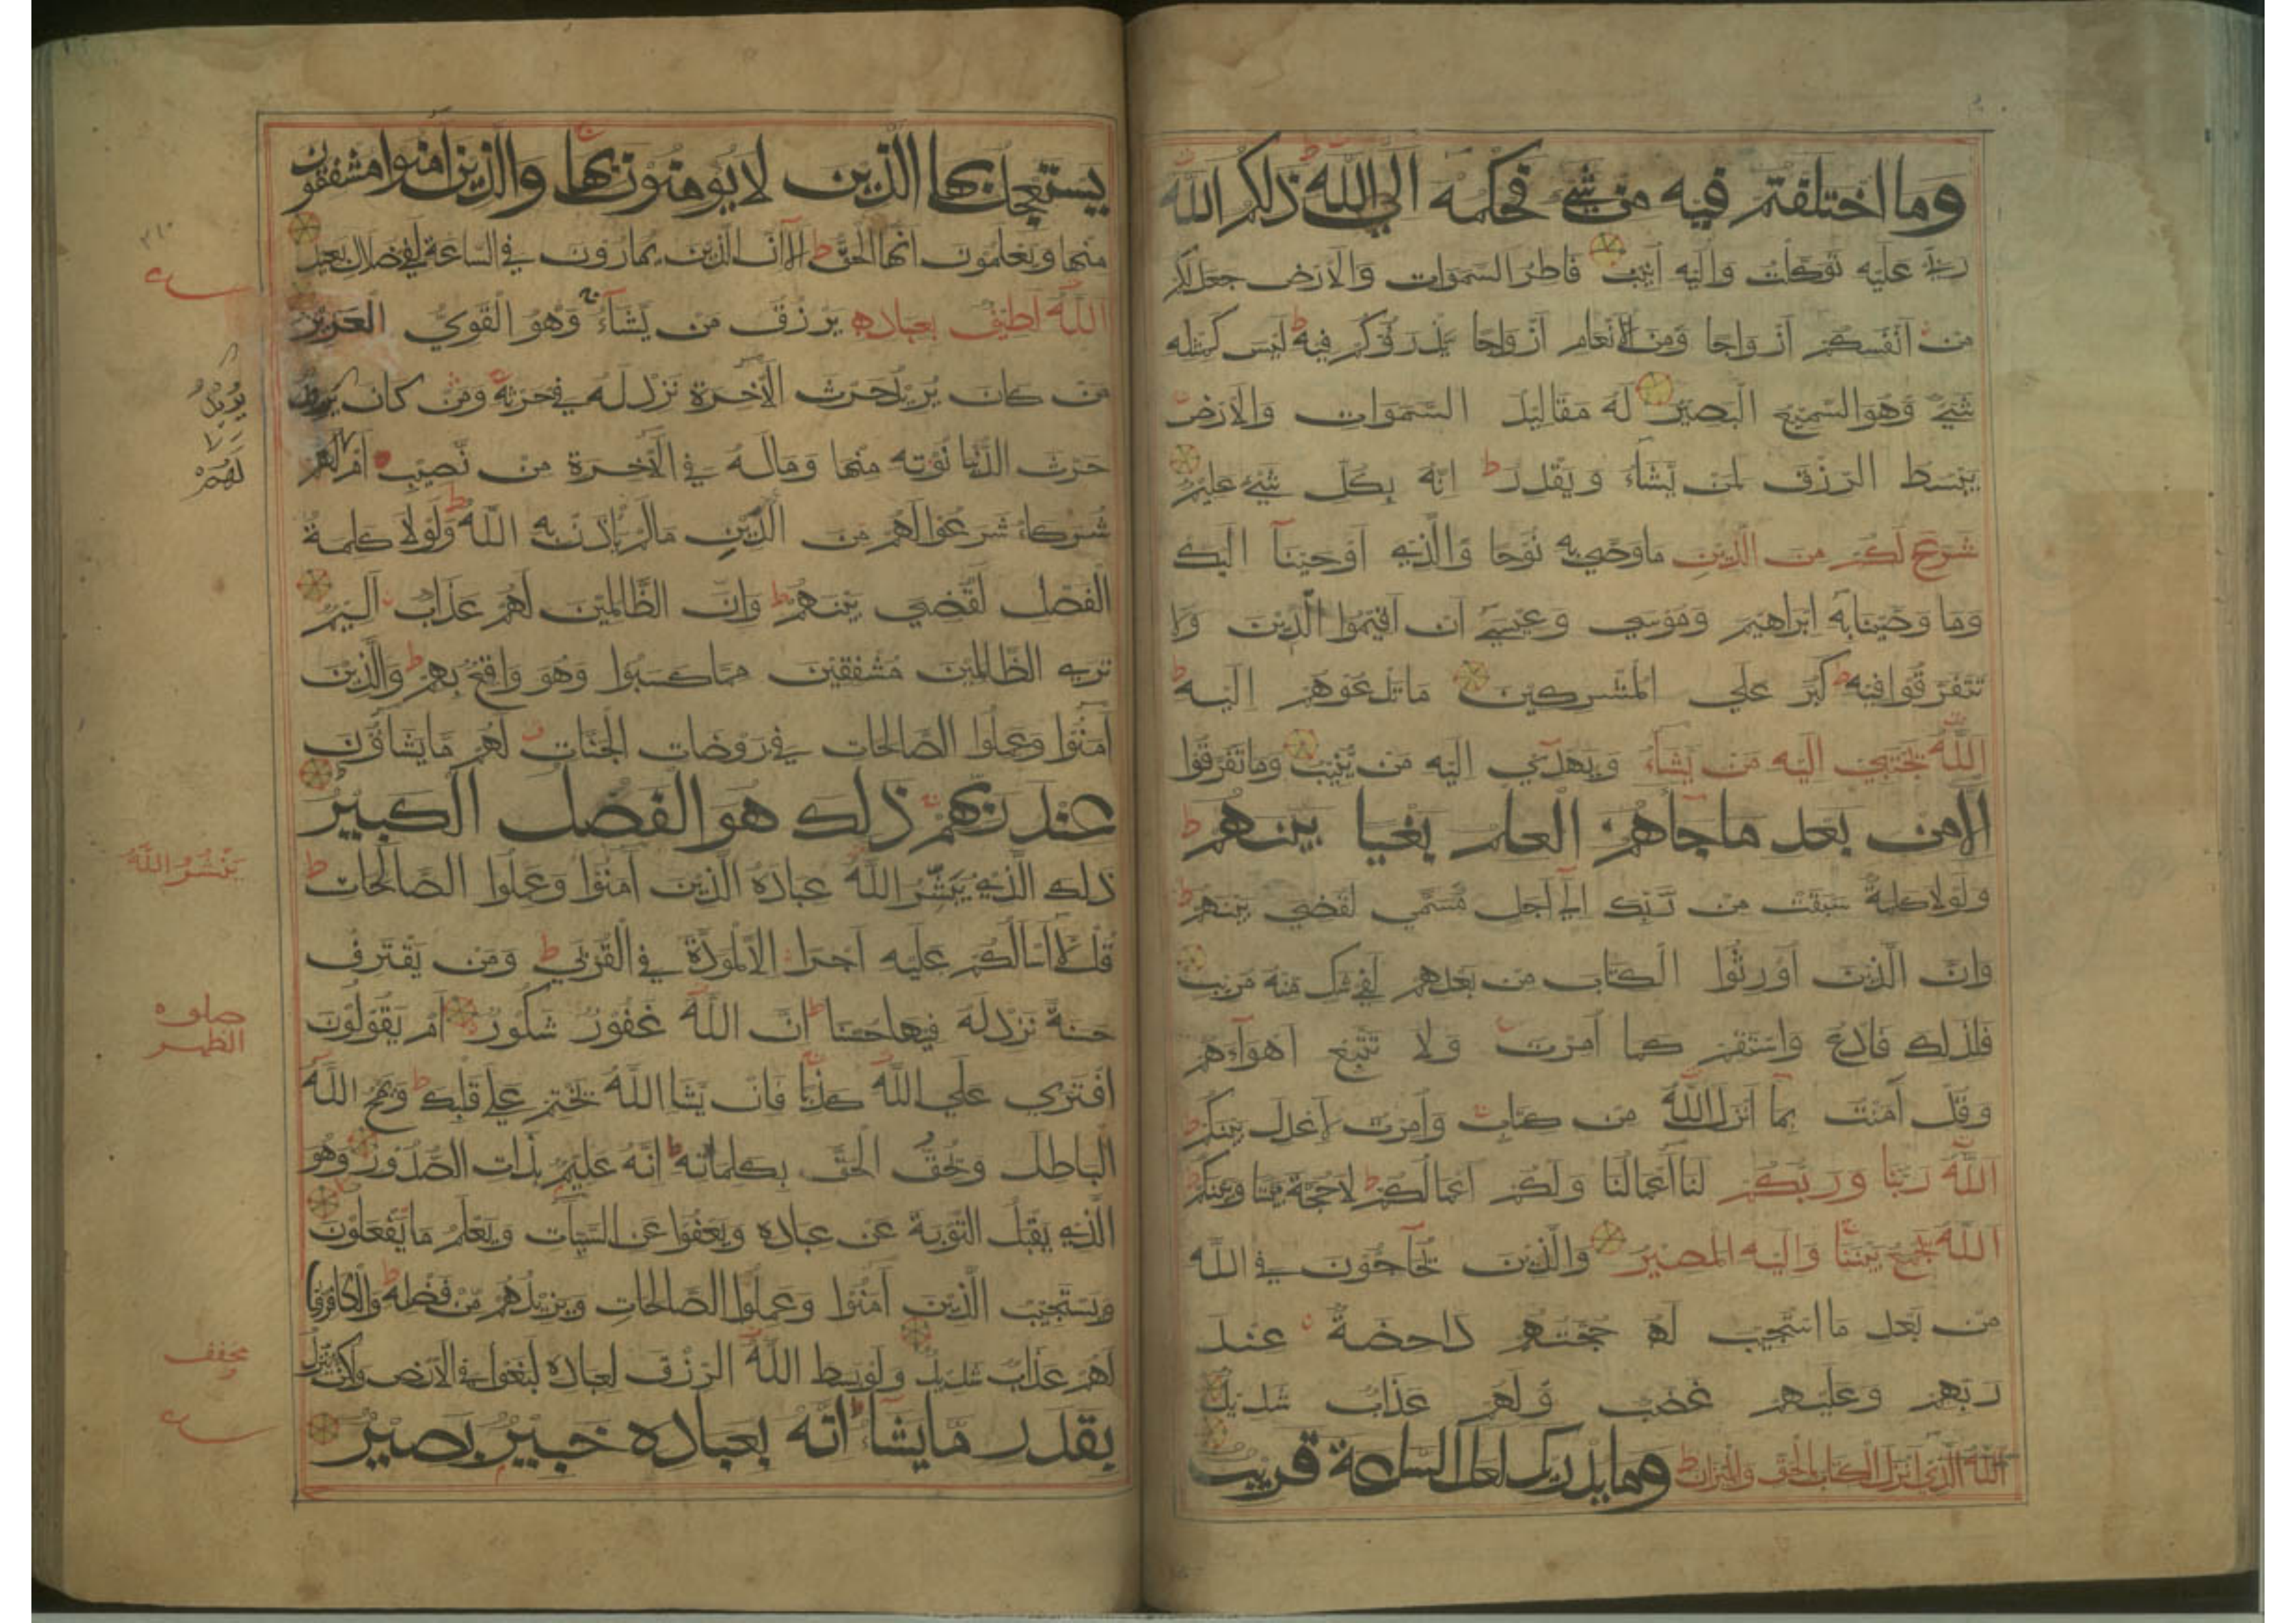 وما اختلفتم فيه من شيء فحكمه الي الله ذلكم الله
ربي عليه توكلت واليه انيب فاطر السموات والارض جعل لكم
من انفسكم ازواجا ومن الانعام ازواجا يذرؤكم فيه ليس كمثله
شيء وهو السميع البصير له مقاليد السموات والارض
يبسط الرزق لمن يشاء ويقدر انه بكل شيء عليم
شرع لكم من الدين ما وصي به نوحا والذي اوحينا اليك
وما وصينا به ابراهيم وموسي وعيسي ان اقيموا الدين ولا
تتفرقوا فيه كبر علي المشركين ما تدعوهم اليه
الله يجتبي اليه من يشاء ويهدي اليه من ينيب وما تفرقوا
الا من بعد ما جاهم العلم بغيا بينهم
ولولا كلمة سبقت من ربك الي اجل مسمي لقضي بينهم
وان الذين اورثوا الكتاب من بعدهم لفي شك منه مريب
فلذلك فادع واستقم كما امرت ولا تتبع اهواءهم
وقل آمنت بما انزل الله من كتاب وامرت لاعدل بينكم
الله ربنا وربكم لنا اعمالنا ولكم اعمالكم لا حجة بيننا وبينكم
الله يجمع بيننا واليه المصير والذين يحاجون في الله
من بعد ما استجيب له حجتهم داحضة عند
ربهم وعليهم غضب ولهم عذاب شديد
الله الذي انزل الكتاب بالحق والميزان وما يدريك لعل الساعة قريب
يستعجل بها الذين لا يؤمنون بها والذين امنوا مشفقون
منها ويعلمون انها الحق الا ان الذين يمارون في الساعة لفي ضلال بعيد
الله لطيف بعباده يرزق من يشاء وهو القوي العزيز
من كان يريد حرث الآخرة نزد له في حرثه ومن كان يريد
حرث الدنيا نؤته منها وما له في الآخرة من نصيب ام لهم
شركاء شرعوا لهم من الدين ما لم ياذن به الله ولولا كلمة
الفصل لقضي بينهم وان الظالمين لهم عذاب اليم
تري الظالمين مشفقين مما كسبوا وهو واقع بهم والذين
آمنوا وعملوا الصالحات في روضات الجنات لهم ما يشاؤن
عند ربهم ذلك هو الفضل الكبير
ذلك الذي يبشر الله عباده الذين آمنوا وعملوا الصالحات
قل لا اسالكم عليه اجرا الا المودة في القربي ومن يقترف
حسنة نزد له فيها حسنا ان الله غفور شكور ام يقولون
افتري علي الله كذبا فان يشا الله يختم علي قلبك ويمح الله
الباطل ويحق الحق بكلماته انه عليم بذات الصدور وهو
الذي يقبل التوبة عن عباده ويعفوا عن السيآت ويعلم ما يفعلون
ويستجيب الذين آمنوا وعملوا الصالحات ويزيدهم من فضله والكافرون
لهم عذاب شديد ولو بسط الله الرزق لعباده لبغوا في الارض ولكن ينزل
بقدر ما يشا انه بعباده خبير بصير
يريد
لهم
يبشر الله
صلوه
الظهر
مخفف